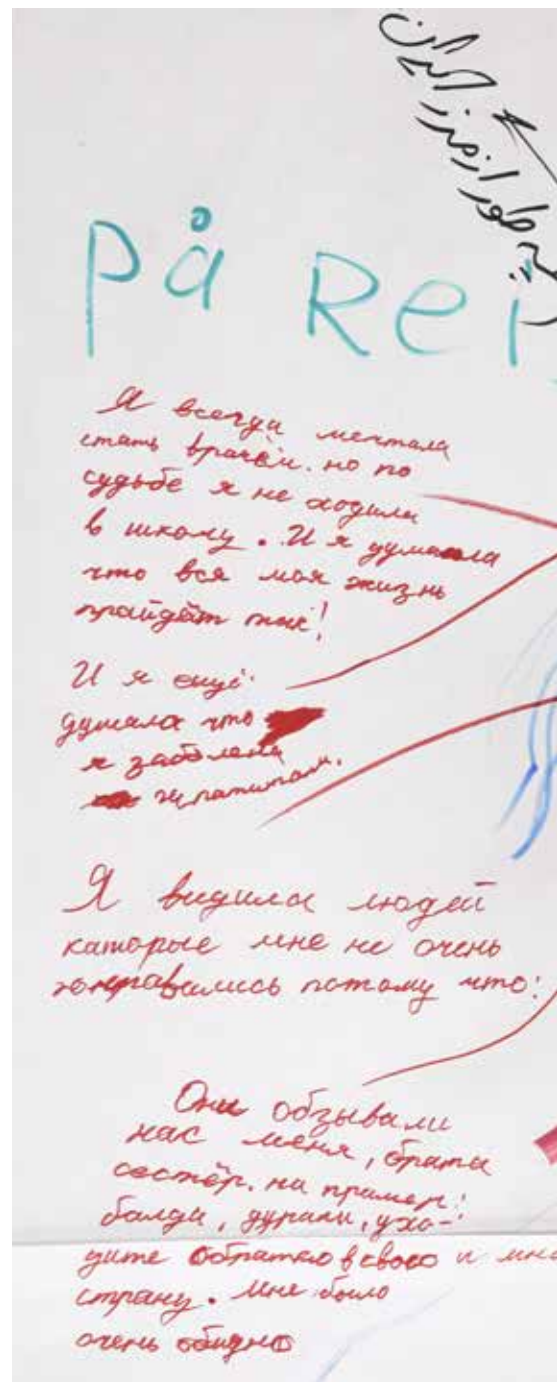 ایران
چه طور از مرز
på Rei
Я всегда мечтала
стать врачём. но по
судьбе я не ходила
в школу. И я думала
что вся моя жизнь
прайдёт так!
И я ещё
думала что
я заболела
гепатитом.
Я видила людей
каторые мне не очень
понравились потому что:
Они обзывали
нас меня, брата
сестёр. на пример:
балда, дураки, ухо-
дите обратно в свою и мно
страну. Мне было
очень обидно